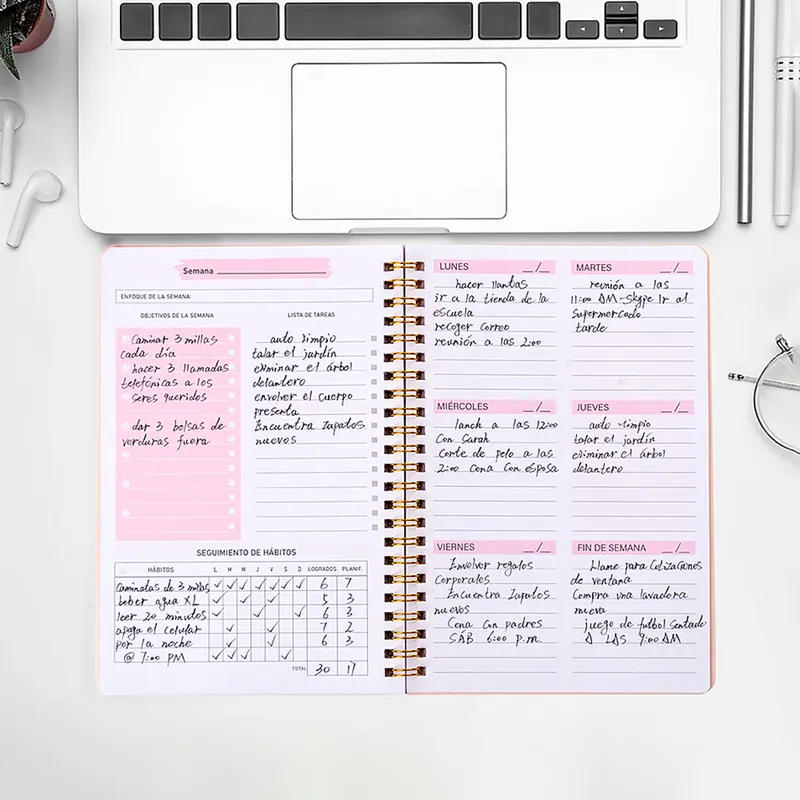 Semana
ENFOQUE DE LA SEMANA:
OBJETIVOS DE LA SEMANA
Caminar 3 millas
cada día
hacer 3 llamadas
telefónicas a los
seres queridos
dar 3 bolsas de
verduras fuera
LISTA DE TAREAS
auto limpio
talar el jardín
eliminar el árbol
delantero
envolver el cuerpo
presenta
Encuentra Zapatos
nuevos
SEGUIMIENTO DE HÁBITOS
HÁBITOS L M M J V S D LOGRADOS PLANIF.
Caminatas de 3 millas ✓ ✓ ✓ ✓ ✓ ✓ ✓ 6 7
beber agua XL ✓ ✓ ✓ 5 3
leer 20 minutos ✓ ✓ ✓ 6 3
apaga el celular ✓ ✓ 7 2
por la noche ✓ ✓ 6 3
@ 7:00 PM ✓ ✓ ✓ ✓
TOTAL 30 17
LUNES __/__
hacer llantas
ir a la tienda de la
escuela
recoger correo
reunión a las 2:00
MARTES __/__
reunión a las
11:00 AM-Skype Ir al
Supermercado
tarde
MIÉRCOLES __/__
lanch a las 12:00
Con Sarah
Corte de pelo a las
2:00 Cena Con esposa
JUEVES __/__
auto limpio
talar el jardín
eliminar el árbol
delantero
VIERNES __/__
Envolver regalos
Corporates
Encuentra Zapatos
nuevos
Cena Con padres
SAB 6:00 p.m.
FIN DE SEMANA __/__
Llame para Cotizaciones
de ventana
Compra una lavadora
nueva
juego de futbol Sentado
A LAS 9:00 AM